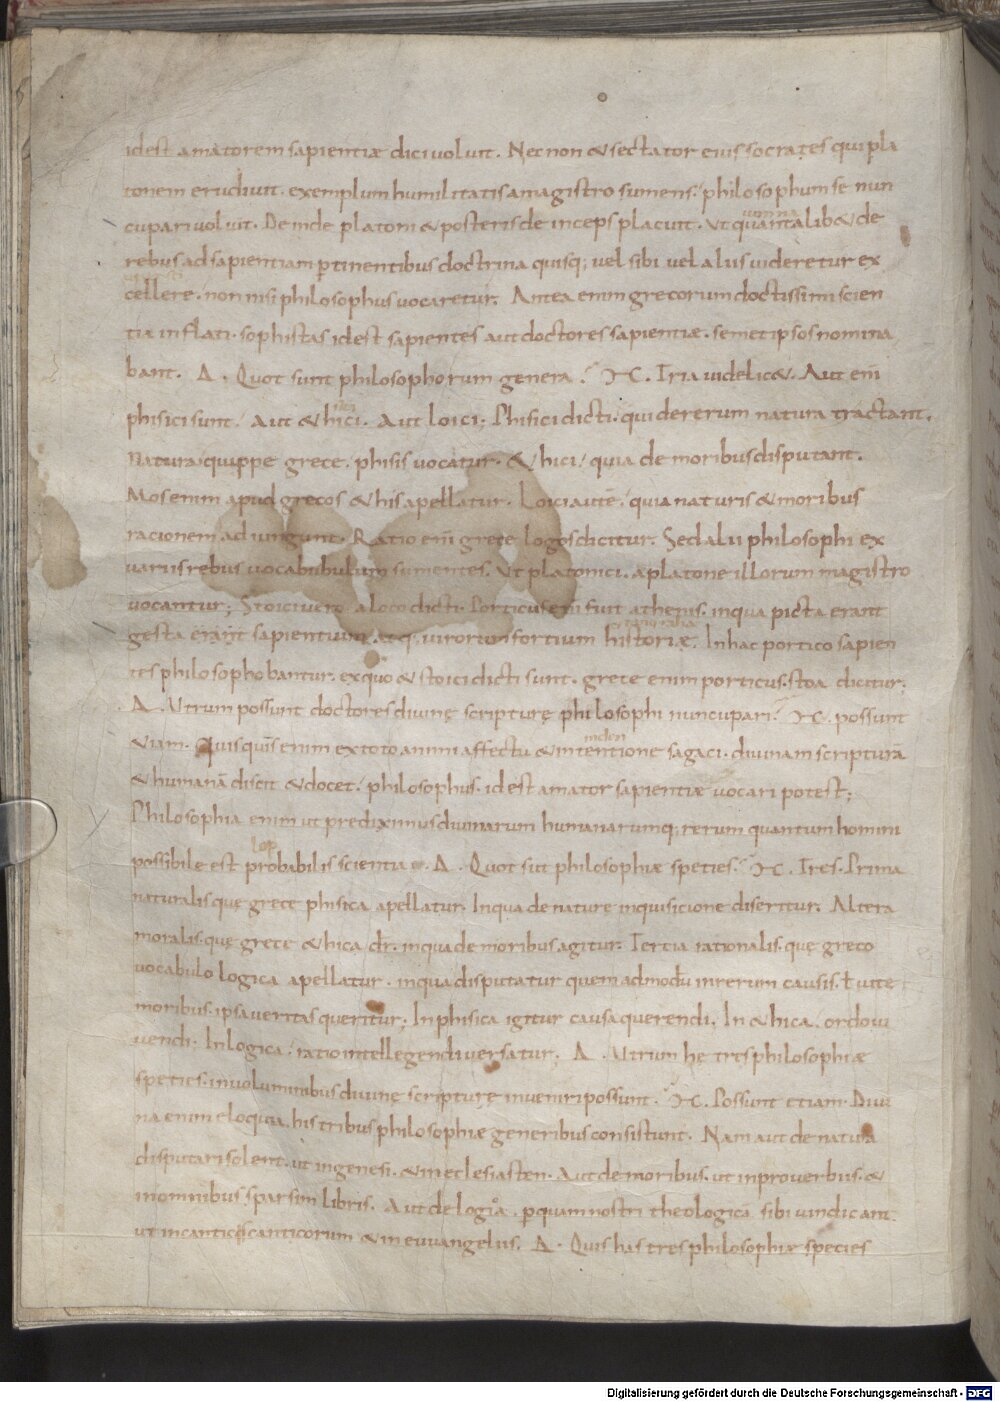 idest amatorem sapientiæ dici voluit. Nec non & sectator eius socrates qui pla
tonem erudivit. exemplum humilitatis a magistro sumens. philosophum se nun
cupari voluit. Deinde platoni & posteris deinceps placuit. Ut quantalib& de
rebus ad sapientiam ꝑtinentibus doctrina quisq; vel sibi vel aliis videretur ex
cellere. non nisi philosophus vocaretur. Antea enim grecorum doctissimi scien
tia inflati. sophistas idest sapientes aut doctores sapientiæ. semetipsos nomina
bant. Δ. Quot sunt philosophorum genera. Tria videlic&. Aut eni̅
phisici sunt. aut &hici. Aut loici; Phisici dicti. qui de rerum natura tractant.
Natura quippe grece. phisis vocatur. &hici. quia de moribus disputant.
Mos enim apud grecos &his apellatur. Loici aute̅. quia naturis & moribus
racionem adiungunt. Ratio eni̅ grece logos dicitur. Sed alii philosophi ex
variis rebus vocabubulum sumentes. Ut platonici. a platone illorum magistro
vocantur; Stoici vero a loco dicti. Porticus eni̅ fuit athenis. in qua picta erant
gesta erant sapientium. atq; virorum fortium historiæ. In hac portico sapien
tes philosophobantur. ex quo & stoici dicti sunt. grece enim porticus. stoa dicitur.
Δ. Utrum possunt doctores divinę scripturę philosophi nuncupari. possunt
&iam. Quisquis enim ex toto animi affectu & intentione sagaci. divinam scriptura̅
& humana̅ discit & docet. philosophus. idest amator sapientiæ vocari potest;
Philosophia enim ut prediximus divinarum humanarumq; rerum quantum homini
possibile est probabilis scientia. Δ. Quot sut philosophiæ species. Tres. Prima
naturalis quę grece phisica apellatur. In qua de naturę inquisicione diseritur. Altera
moralis. quę grece &hica dr̅. in qua de moribus agitur. Tertia rationalis. quę greco
vocabulo logica apellatur. in qua disputatur quemadmodu̅ in rerum causis. ł vite
moribus. ipsa veritas queritur; In phisica igitur causa querendi. In &hica. ordo vi
vendi. In logica. ratio intellegendi versatur. Δ. Utrum hę tres philosophiæ
species. in voluminibus divinę scripturę inveniri possunt. Possunt etiam. Divi
na enim eloquia. his tribus philosophiæ generibus consistunt. Nam aut de natura
disputari solent. ut in genesi. & in eclesiasten. Aut de moribus. ut in proverbiis. &
in omnibus sparsim libris. Aut de logia. ꝓ quam nostri theologica̅ sibi vindicant.
ut in canticis canticorum & in euvangeliis. Δ. Quis has tres philosophiæ species
Digitalisierung gefördert durch die Deutsche Forschungsgemeinschaft - DFG